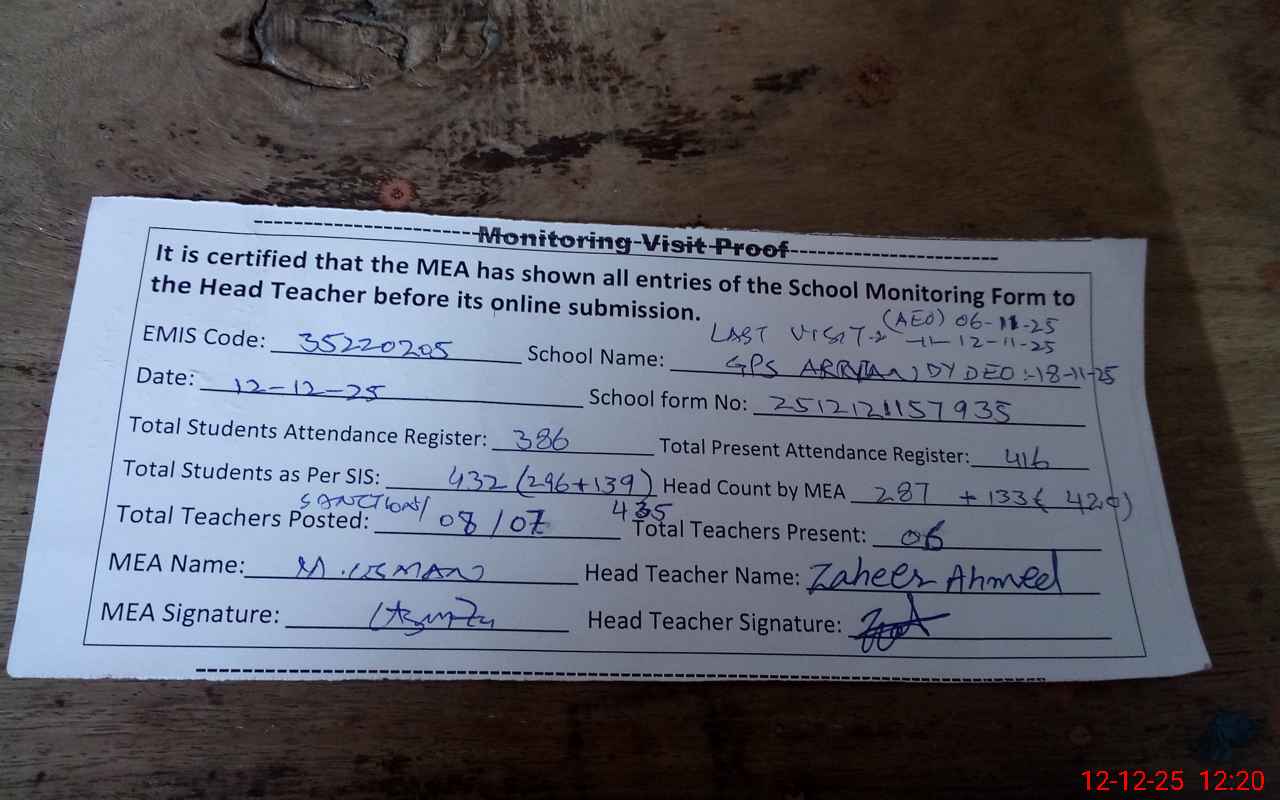 Monitoring Visit Proof
It is certified that the MEA has shown all entries of the School Monitoring Form to
the Head Teacher before its online submission.
(AEO) 06-11-25
LAST VISIT -11- 12-11-25
EMIS Code: 35220205 School Name: GPS ARRIAN, DY DEO:-18-11-25
Date: 12-12-25 School form No: 2512121157935
Total Students Attendance Register: 386 Total Present Attendance Register: 416
Total Students as Per SIS: 432 (296+139) Head Count by MEA 287 +133( 420)
SANCTIONS/ 435
Total Teachers Posted: 08/07 Total Teachers Present: 06
MEA Name: M.USMAN Head Teacher Name: Zaheer Ahmed
MEA Signature: Head Teacher Signature:
12-12-25 12:20